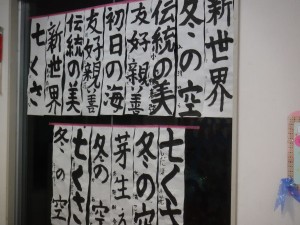 新世界
冬の空
伝統の美
友好親善
初日の海
友好親善
伝統の美
新世界
七くさ
七くさ
冬の空
芽生
冬の空
七くさ
冬の空